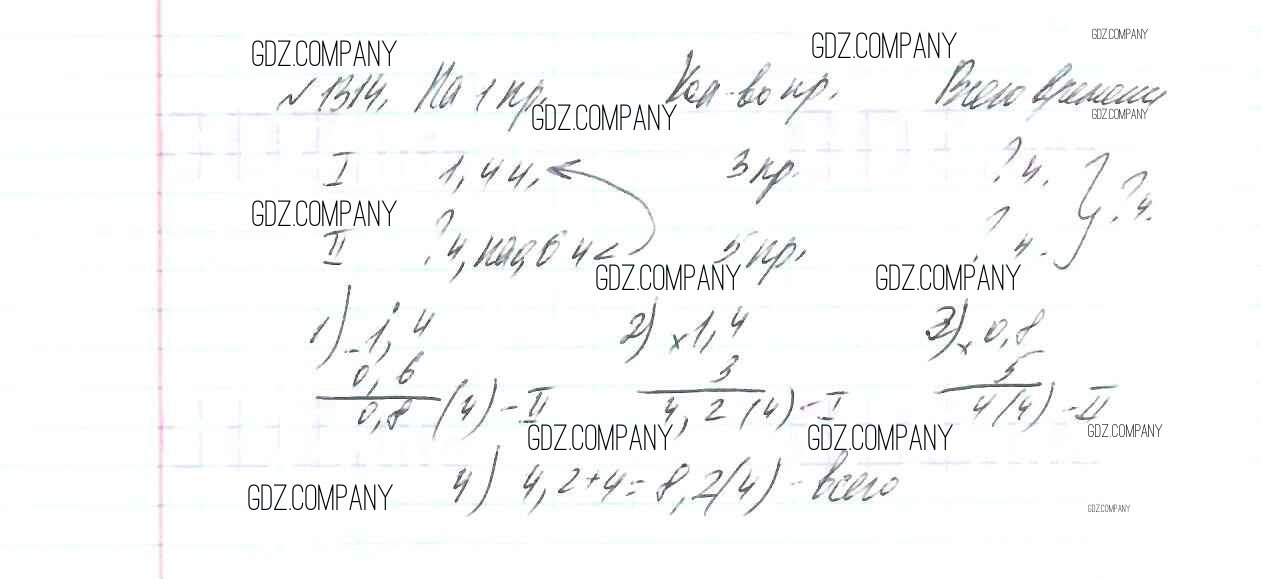 GDZ.COMPANY GDZ.COMPANY GDZ.COMPANY
№1314. На 1 пр. Кол-во пр. Всего времени
GDZ.COMPANY GDZ.COMPANY
I 1,4 ч. 3 пр. ? ч. } ? ч.
GDZ.COMPANY
II ? ч, на 0,6 ч < 5 пр. ? ч.
GDZ.COMPANY GDZ.COMPANY
1) _1,4 2) x1,4 3) x0,8
0,6 3 5
0,8 (ч) - II 4,2 (ч) - I 4 (ч) - II
GDZ.COMPANY GDZ.COMPANY GDZ.COMPANY
4) 4,2+4=8,2(ч) - всего
GDZ.COMPANY GDZ.COMPANY